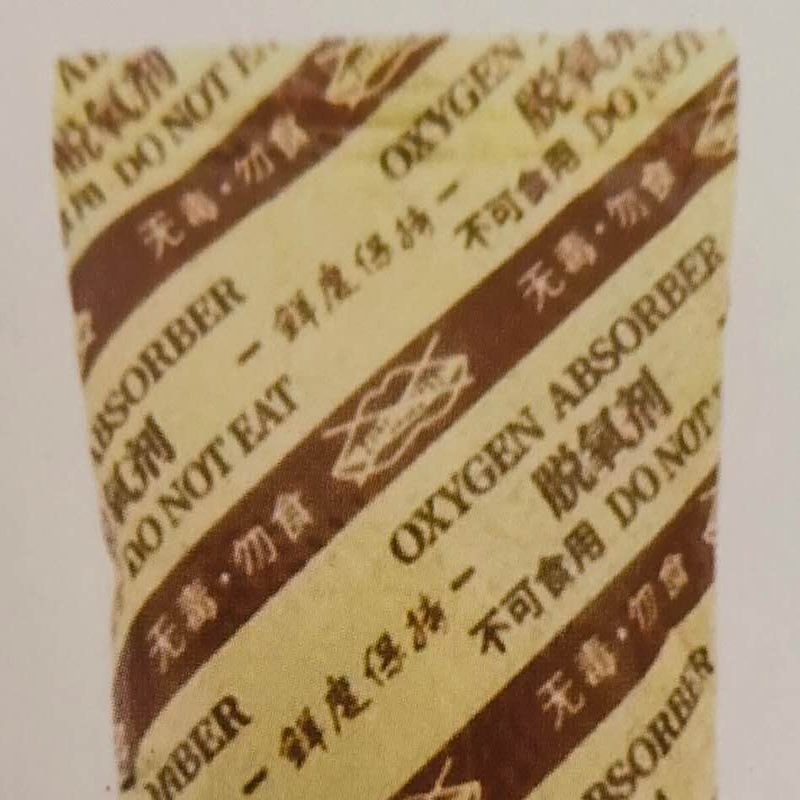 脱氧剂
食用 DO NOT EAT
无毒·勿食
OXYGEN
脱氧剂
不可食用 DO NOT
－鲜度保持－
无毒·勿食
ABSORBER
氧剂
DO NOT EAT
无毒·勿食
OXYGEN ABSORBER
脱氧剂
不可食用 DO NOT
－鲜度保持－
无毒·勿食
ABSORBER